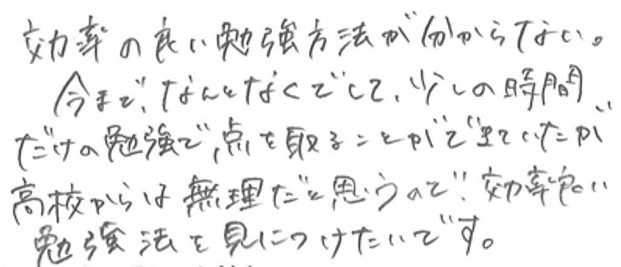 効率の良い勉強方法が分からない。
今まで、なんとなくでして、少しの時間
だけの勉強で、点を取ることができていたが
高校からは無理だと思うので、効率良い
勉強法を見につけたいです。